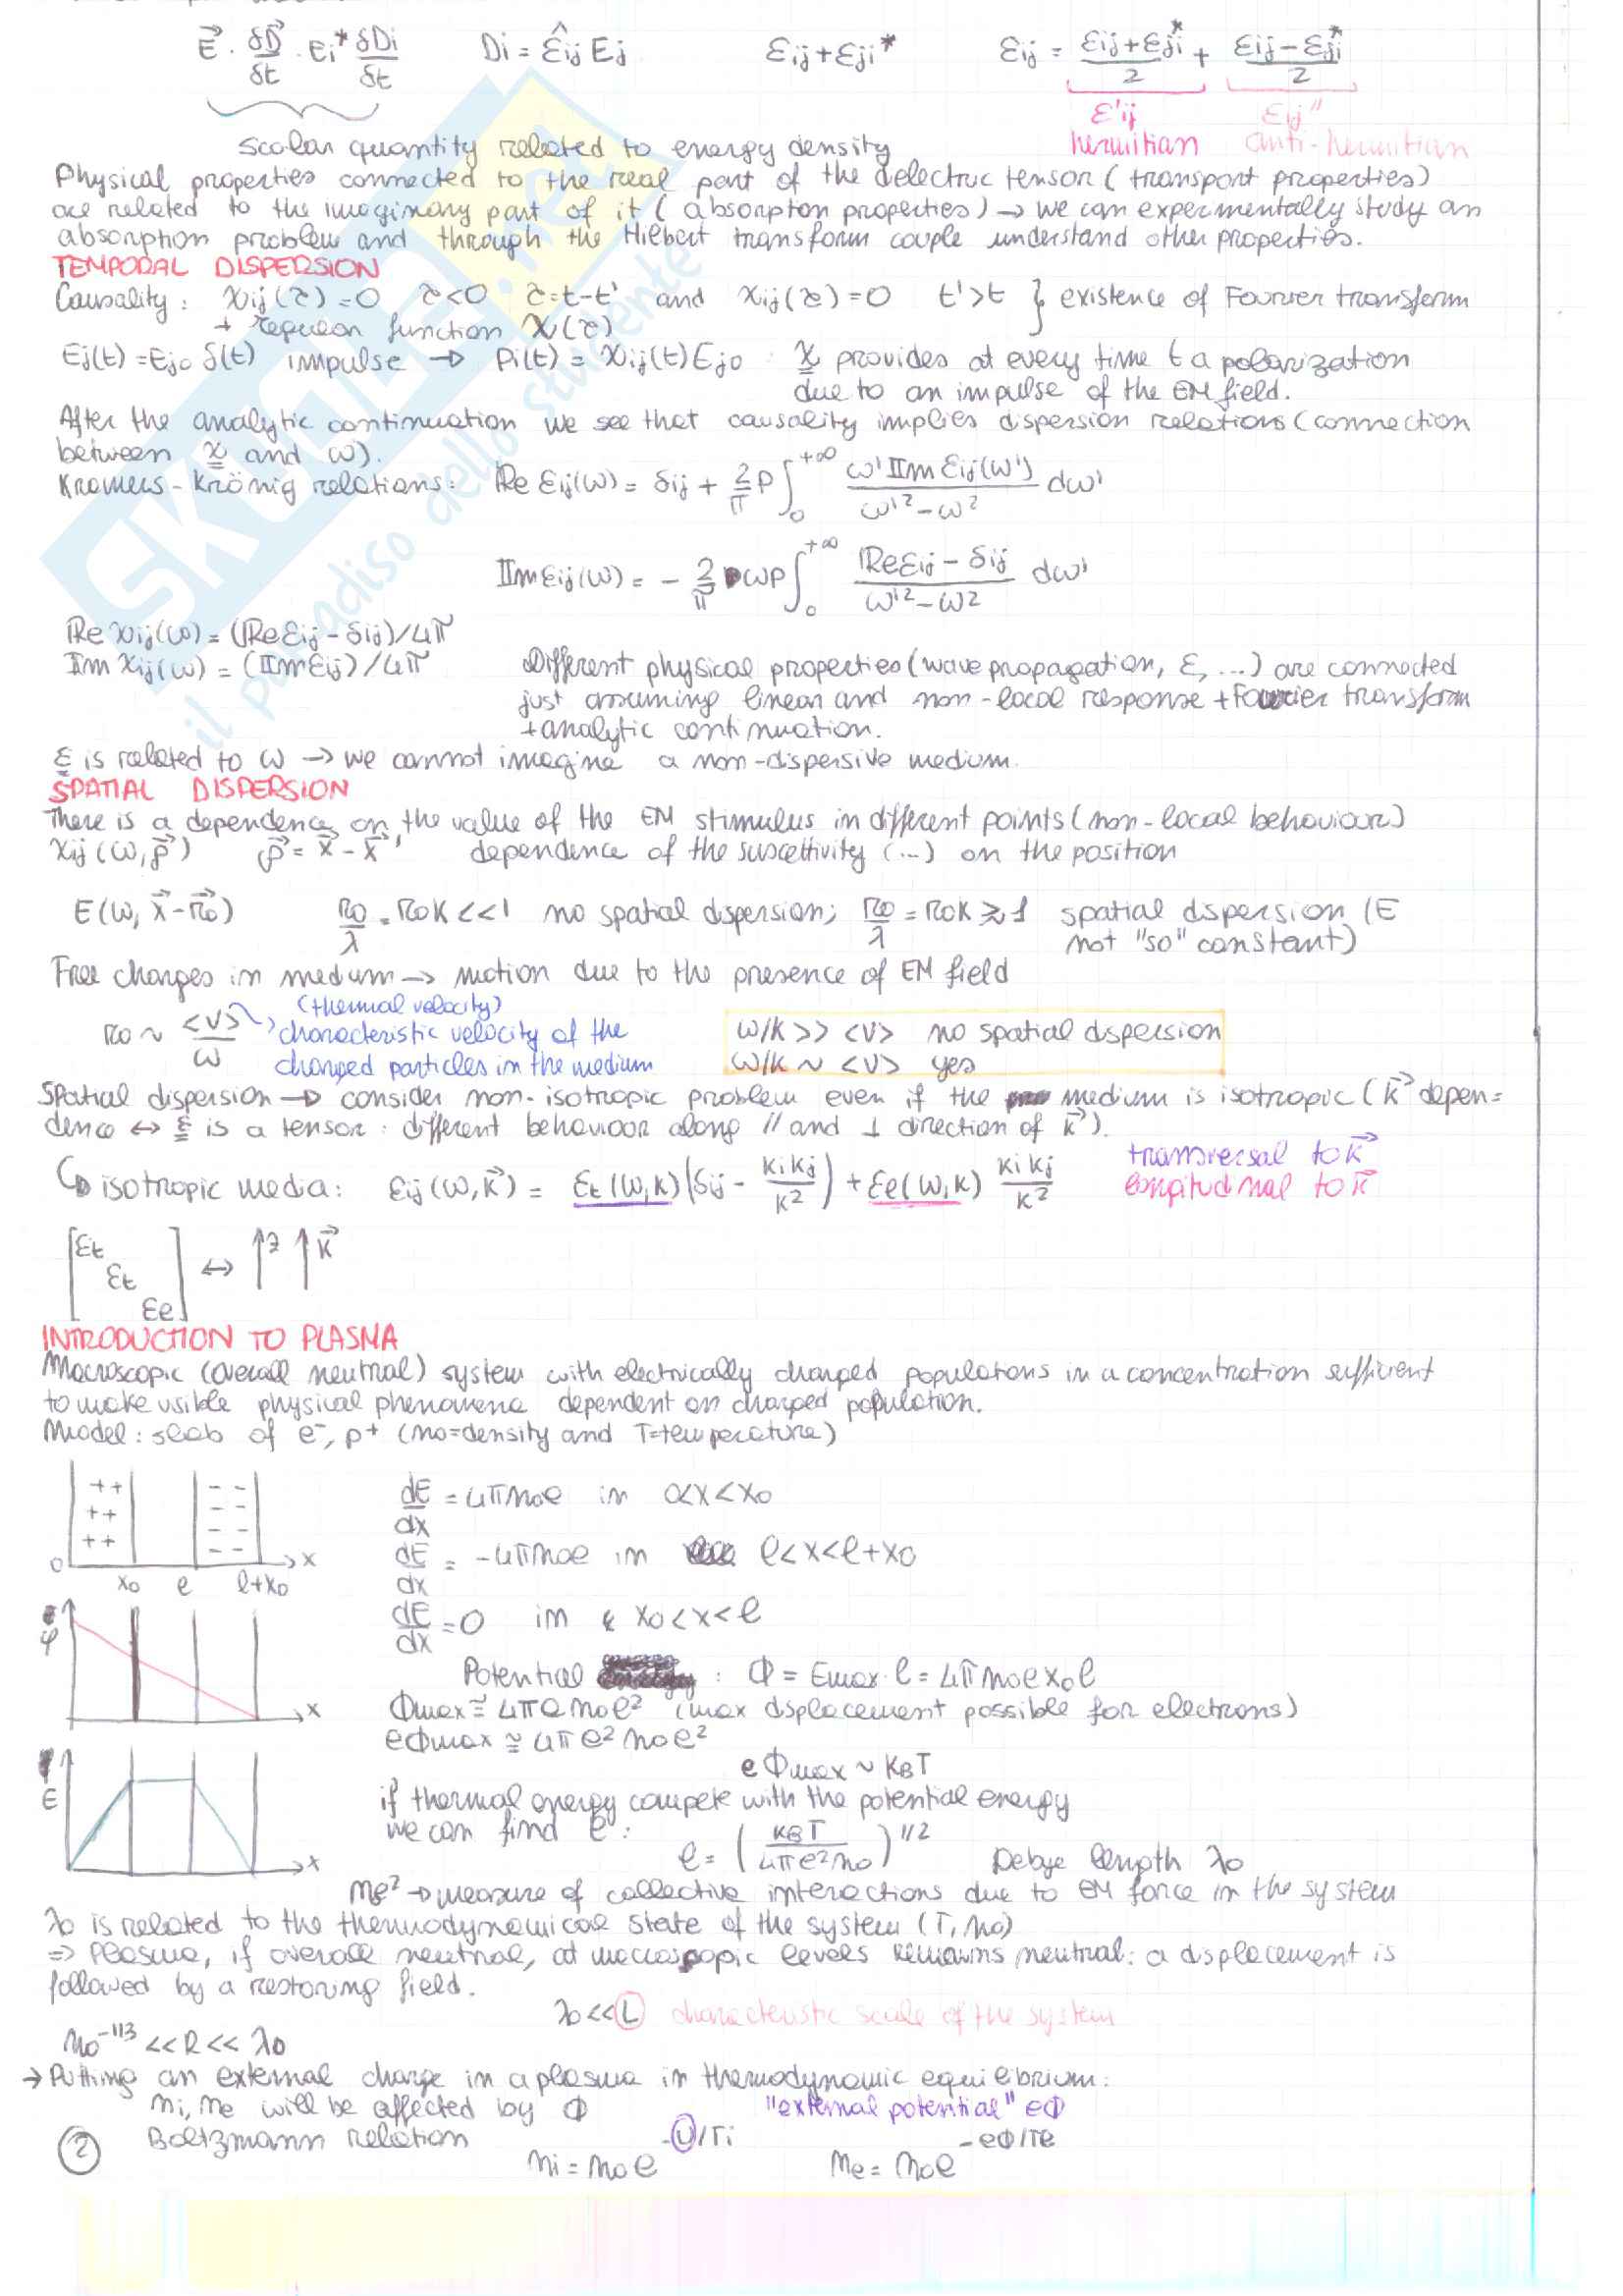 E⃗ · δD⃗/δt · Ei* δDi/δt    Di = ε̂ij Ej    εij + εji*    εij = (εij + εji*)/2 + (εij − εji*)/2
ε'ij    εij''
hermitian    anti-hermitian
scalar quantity related to energy density
Physical properties connected to the real part of the dielectric tensor (transport properties)
are related to the imaginary part of it (absorption properties) → we can expermentally study an
absorption problem and through the Hilbert transform couple understand other properties.
TEMPORAL DISPERSION
Causality: χij(τ)=0  τ<0  τ=t-t'  and  χij(τ)=0  t'>t } existence of Fourier transform
+ regular function χ(τ)
Ej(t)=Ejo δ(t) impulse → Pi(t) = χij(t)Ejo : χ provides at every time t a polarization
due to an impulse of the EM field.
After the analytic continuation we see that causality implies dispersion relations (connection
between χ and ω).
Kramers-Krönig relations: Re εij(ω) = δij + 2/π P ∫₀^{+∞} ω' Im εij(ω') / (ω'² − ω²) dω'
Im εij(ω) = − 2/π ωP ∫₀^{+∞} (Re εij − δij) / (ω'² − ω²) dω'
Re χij(ω) = (Re εij − δij)/4π
Im χij(ω) = (Im εij)/4π    Different physical properties (wave propagation, ε, ...) are connected
just assuming linear and non-local response + Fourier transform
+ analytic continuation.
ε is related to ω → we cannot imagine a non-dispersive medium.
SPATIAL DISPERSION
There is a dependence on the value of the EM stimulus in different points (non-local behaviour)
χij(ω, ρ⃗)    ρ⃗ = x⃗ - x⃗'    dependence of the suscettivity (...) on the position
E(ω, x⃗-r⃗o)    ro/λ = roK <<1 no spatial dispersion; ro/λ = roK ≳ 1 spatial dispersion (E
not "so" constant)
Free charges in medium → motion due to the presence of EM field
ro ~ <v>/ω  (thermal velocity)
characteristic velocity of the
charged particles in the medium
ω/K >> <v> no spatial dispersion
ω/K ~ <v> yes
Spatial dispersion → consider non-isotropic problem even if the medium is isotropic (k⃗ depen=
dence ↔ ε is a tensor: different behaviour along // and ⊥ direction of k⃗).
↳ isotropic media: εij(ω, k⃗) = εt(ω,k) (δij − kikj/k²) + εe(ω,k) kikj/k²
transversal to k⃗
longitudinal to k⃗
[εt εt εe] ↔ ↑z ↑k⃗
INTRODUCTION TO PLASMA
Macroscopic (overall neutral) system with electrically charged populations in a concentration sufficient
to make visible physical phenomena dependent on charged population.
Model: slab of e⁻, p⁺ (no=density and T=temperature)
++ ++ ++  -- -- -- --
0  xo  l  l+xo  x
dE/dx = 4πnoe in 0<x<xo
dE/dx = -4πnoe in l<x<l+xo
dE/dx = 0 in xo<x<l
φ  x
Potential : Φ = Emax·l = 4πnoexol
Φmax ≅ 4πenol² (max displacement possible for electrons)
eΦmax ≅ 4πe²nol²
E  x
eΦmax ~ KBT
if thermal energy compete with the potential energy
we can find l:  l = (KBT / 4πe²no)^1/2    Debye length λD
ne² → measure of collective interactions due to EM force in the system
λD is related to the thermodynamical state of the system (T, no)
⇒ Plasma, if overall neutral, at macroscopic levels remains neutral: a displacement is
followed by a restoring field.
λD << L characteristic scale of the system
no^-1/3 << R << λD
→ Putting an external charge in a plasma in thermodynamic equilibrium:
ni, ne will be affected by Φ    "external potential" eΦ
Boltzmann relation    ni = noe^-U/Ti    ne = noe^-eΦ/Te
2
SKUOLA.net
il paradiso dello studente